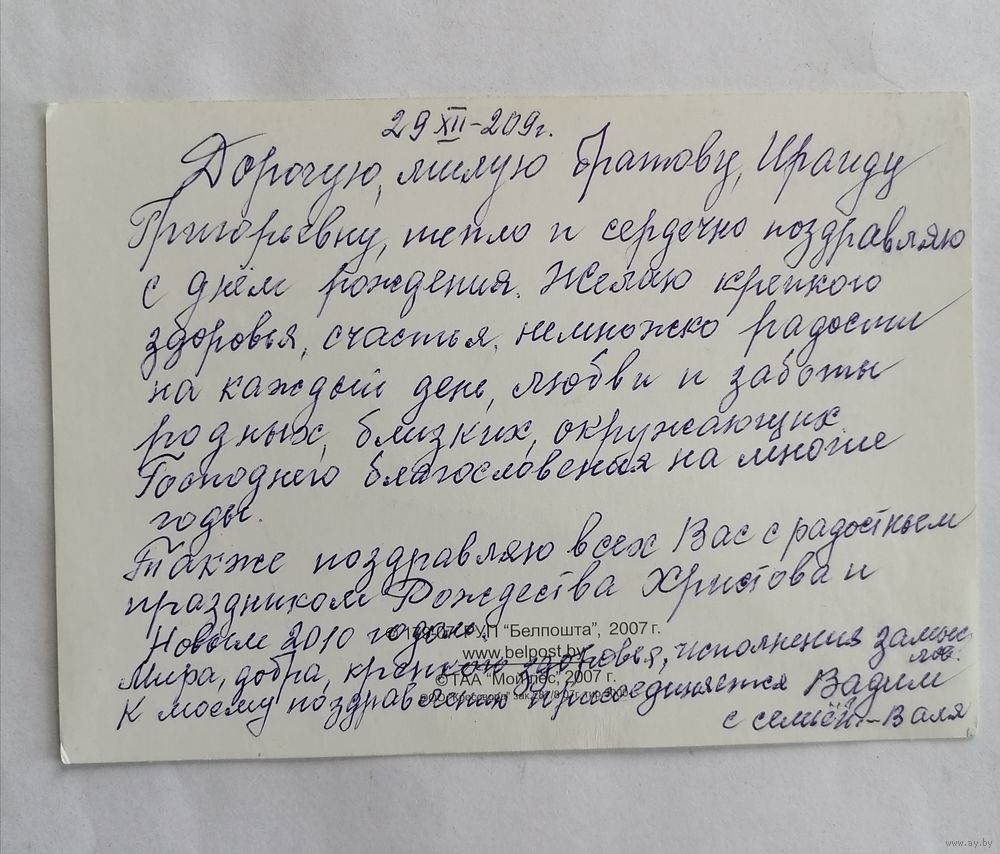 29 XII-209г.
Дорогую, милую братову, Ираиду
Григорьевну, тепло и сердечно поздравляю
с днём рождения. Желаю крепкого
здоровья, счастья, немножко радости
на каждый день, любви и заботы
родных, близких, окружающих
Господнего благословения на многие
годы.
Также поздравляю всех Вас с радостным
праздником Рождества Христова и
Новым 2010 годом.
РУП “Белпошта”, 2007 г.
www.belpost.by
Мира, добра, крепкого здоровья, исполнения замыс
лов.
© ТАА 2007 г.
К моему поздравлению присоединяется Вадим
с семьёй – Валя
www.ay.by